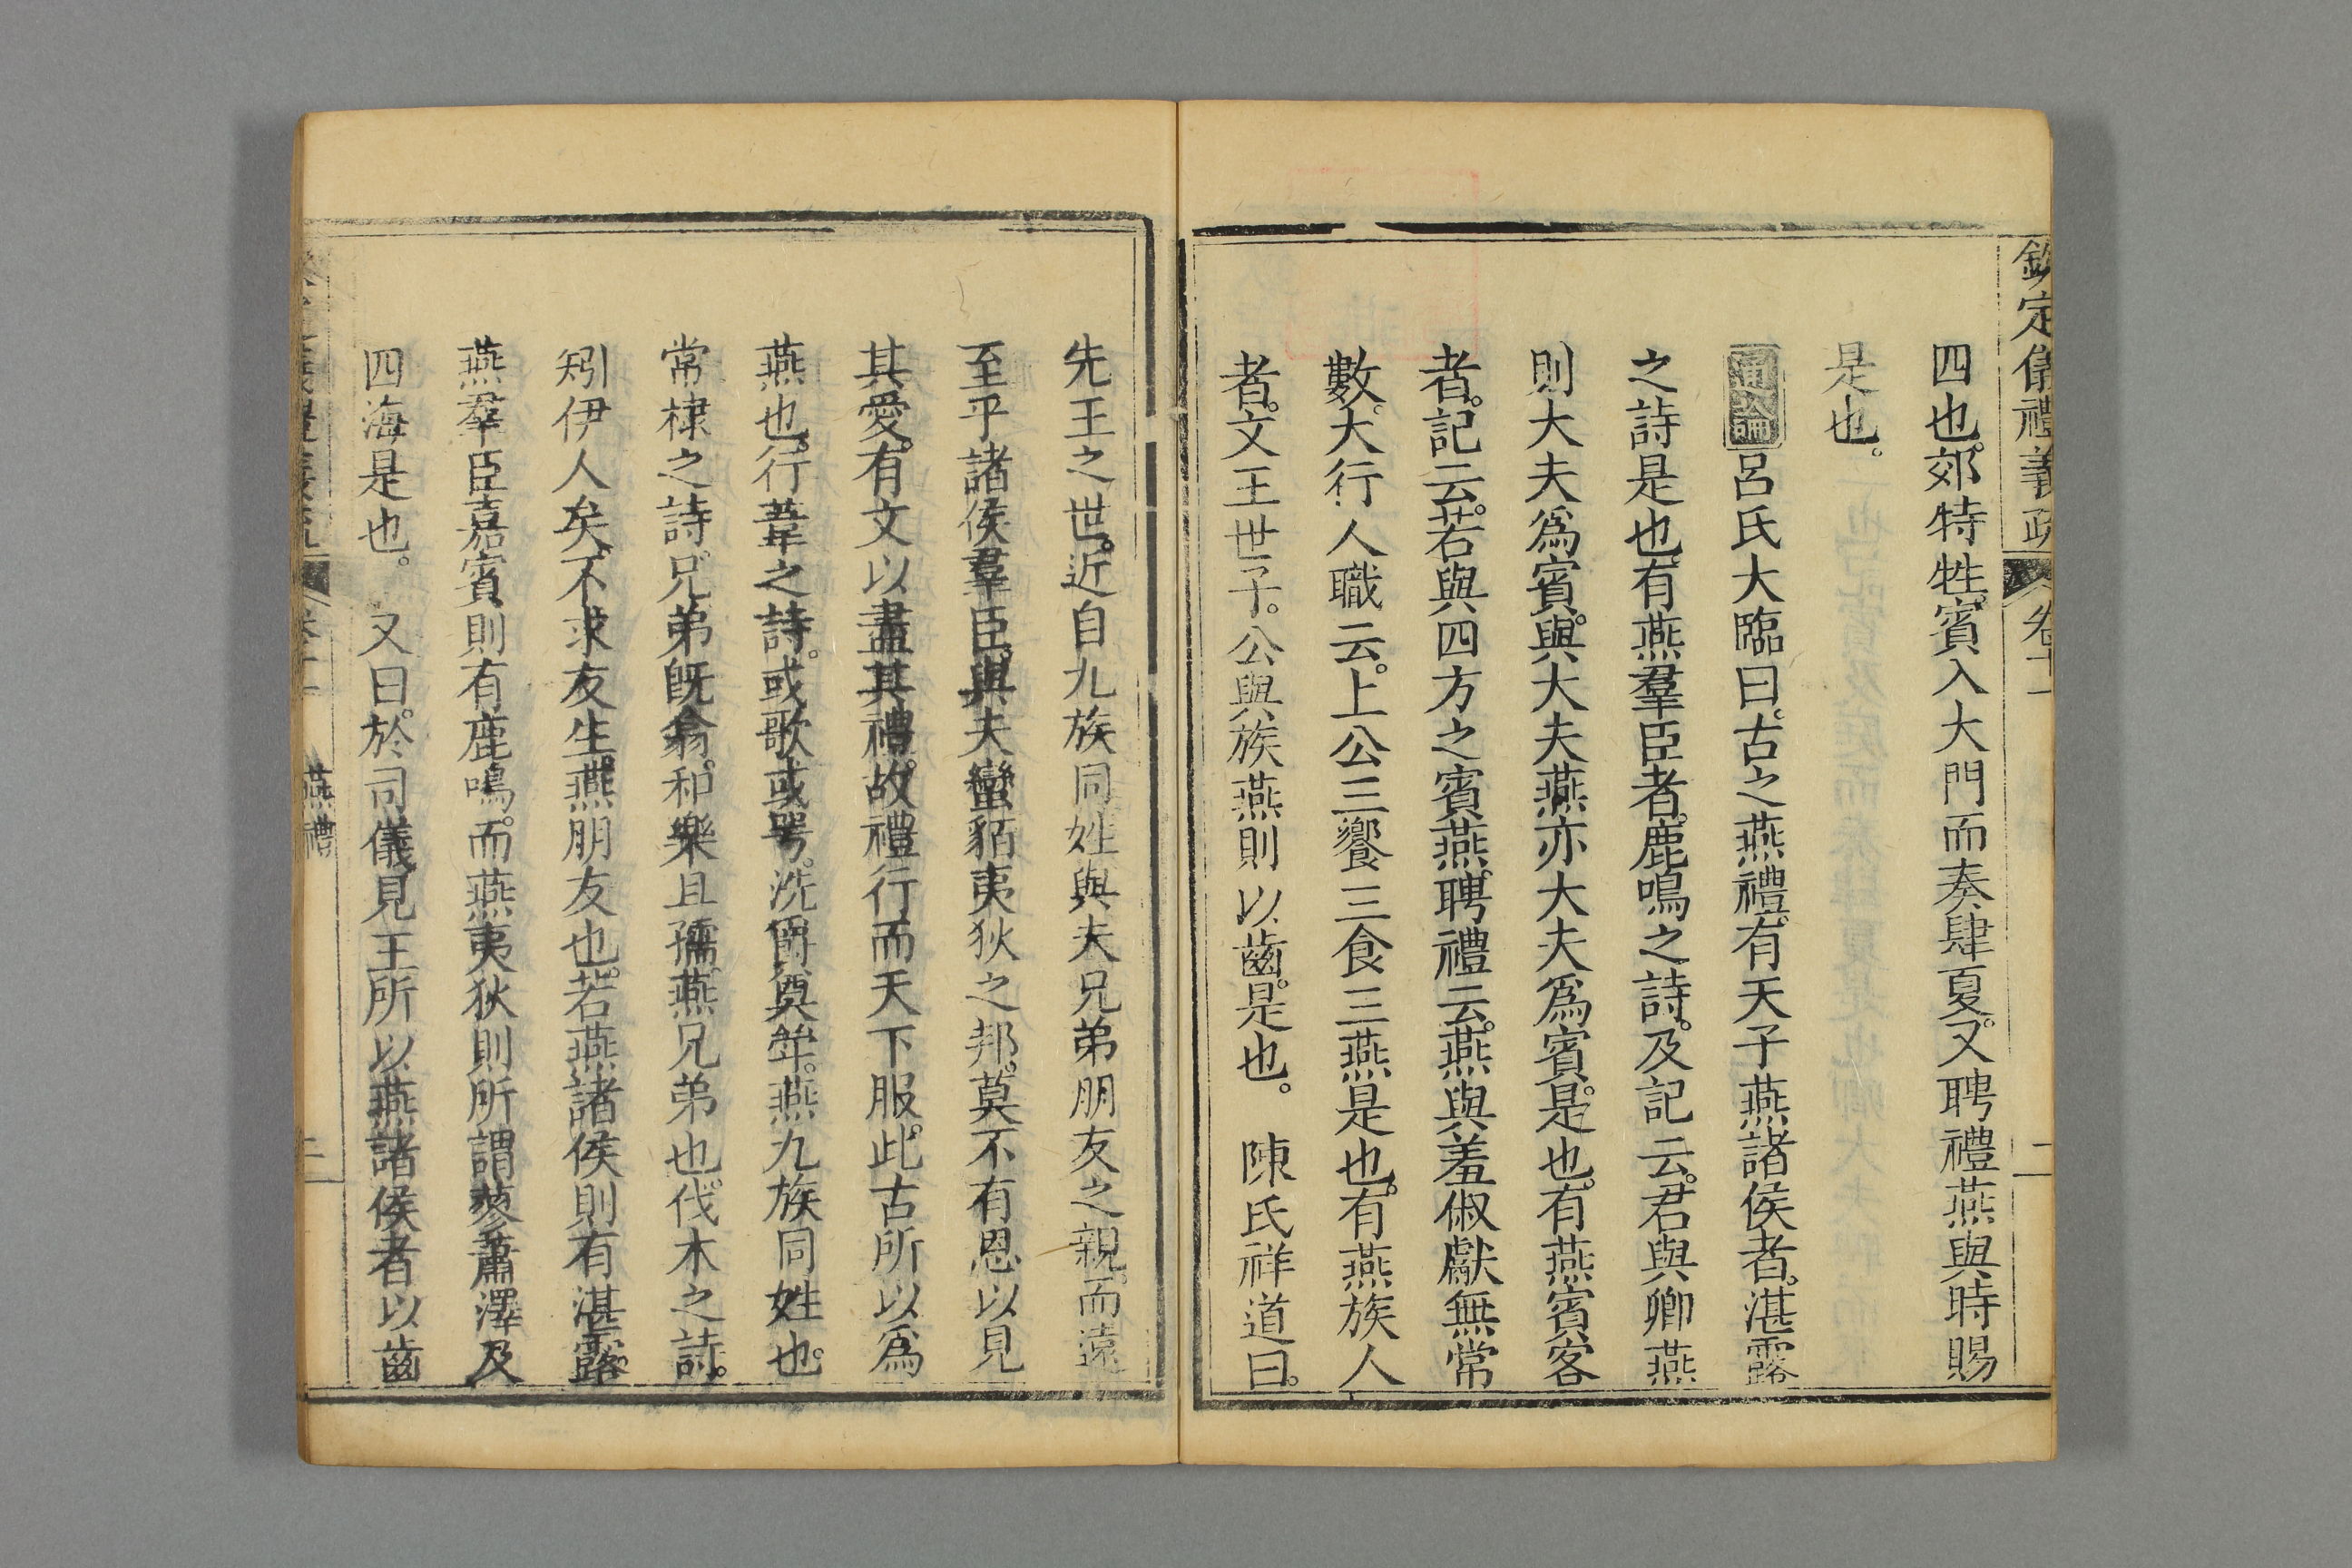 欽定儀禮義疏 卷十一 二
四也。郊特牲。賓入大門而奏肆夏。又聘禮燕與時賜
是也。
通論呂氏大臨曰。古之燕禮。有天子燕諸侯者。湛露
之詩是也。有燕羣臣者。鹿鳴之詩。及記云。君與卿燕
則大夫爲賓。與大夫燕亦大夫爲賓。是也。有燕賓客
者。記云。若與四方之賓燕。聘禮云。燕與羞俶獻無常
數。大行人職云。上公三饗三食三燕是也。有燕族人
者。文王世子。公與族燕則以齒。是也。 陳氏祥道曰。
先王之世。近自九族同姓與夫兄弟朋友之親。而遠
至乎諸侯羣臣。與夫蠻貊夷狄之邦。莫不有恩以見
其愛。有文以盡其禮。故禮行而天下服。此古所以爲
燕也。行葦之詩。或歌或咢。洗爵奠斝。燕九族同姓也。
常棣之詩。兄弟旣翕。和樂且孺。燕兄弟也。伐木之詩。
矧伊人矣。不求友生。燕朋友也。若燕諸侯則有湛露。
燕羣臣嘉賓則有鹿鳴。而燕夷狄則所謂蓼蕭澤及
四海是也。 又曰。於司儀。見王所以燕諸侯者以齒
燕禮